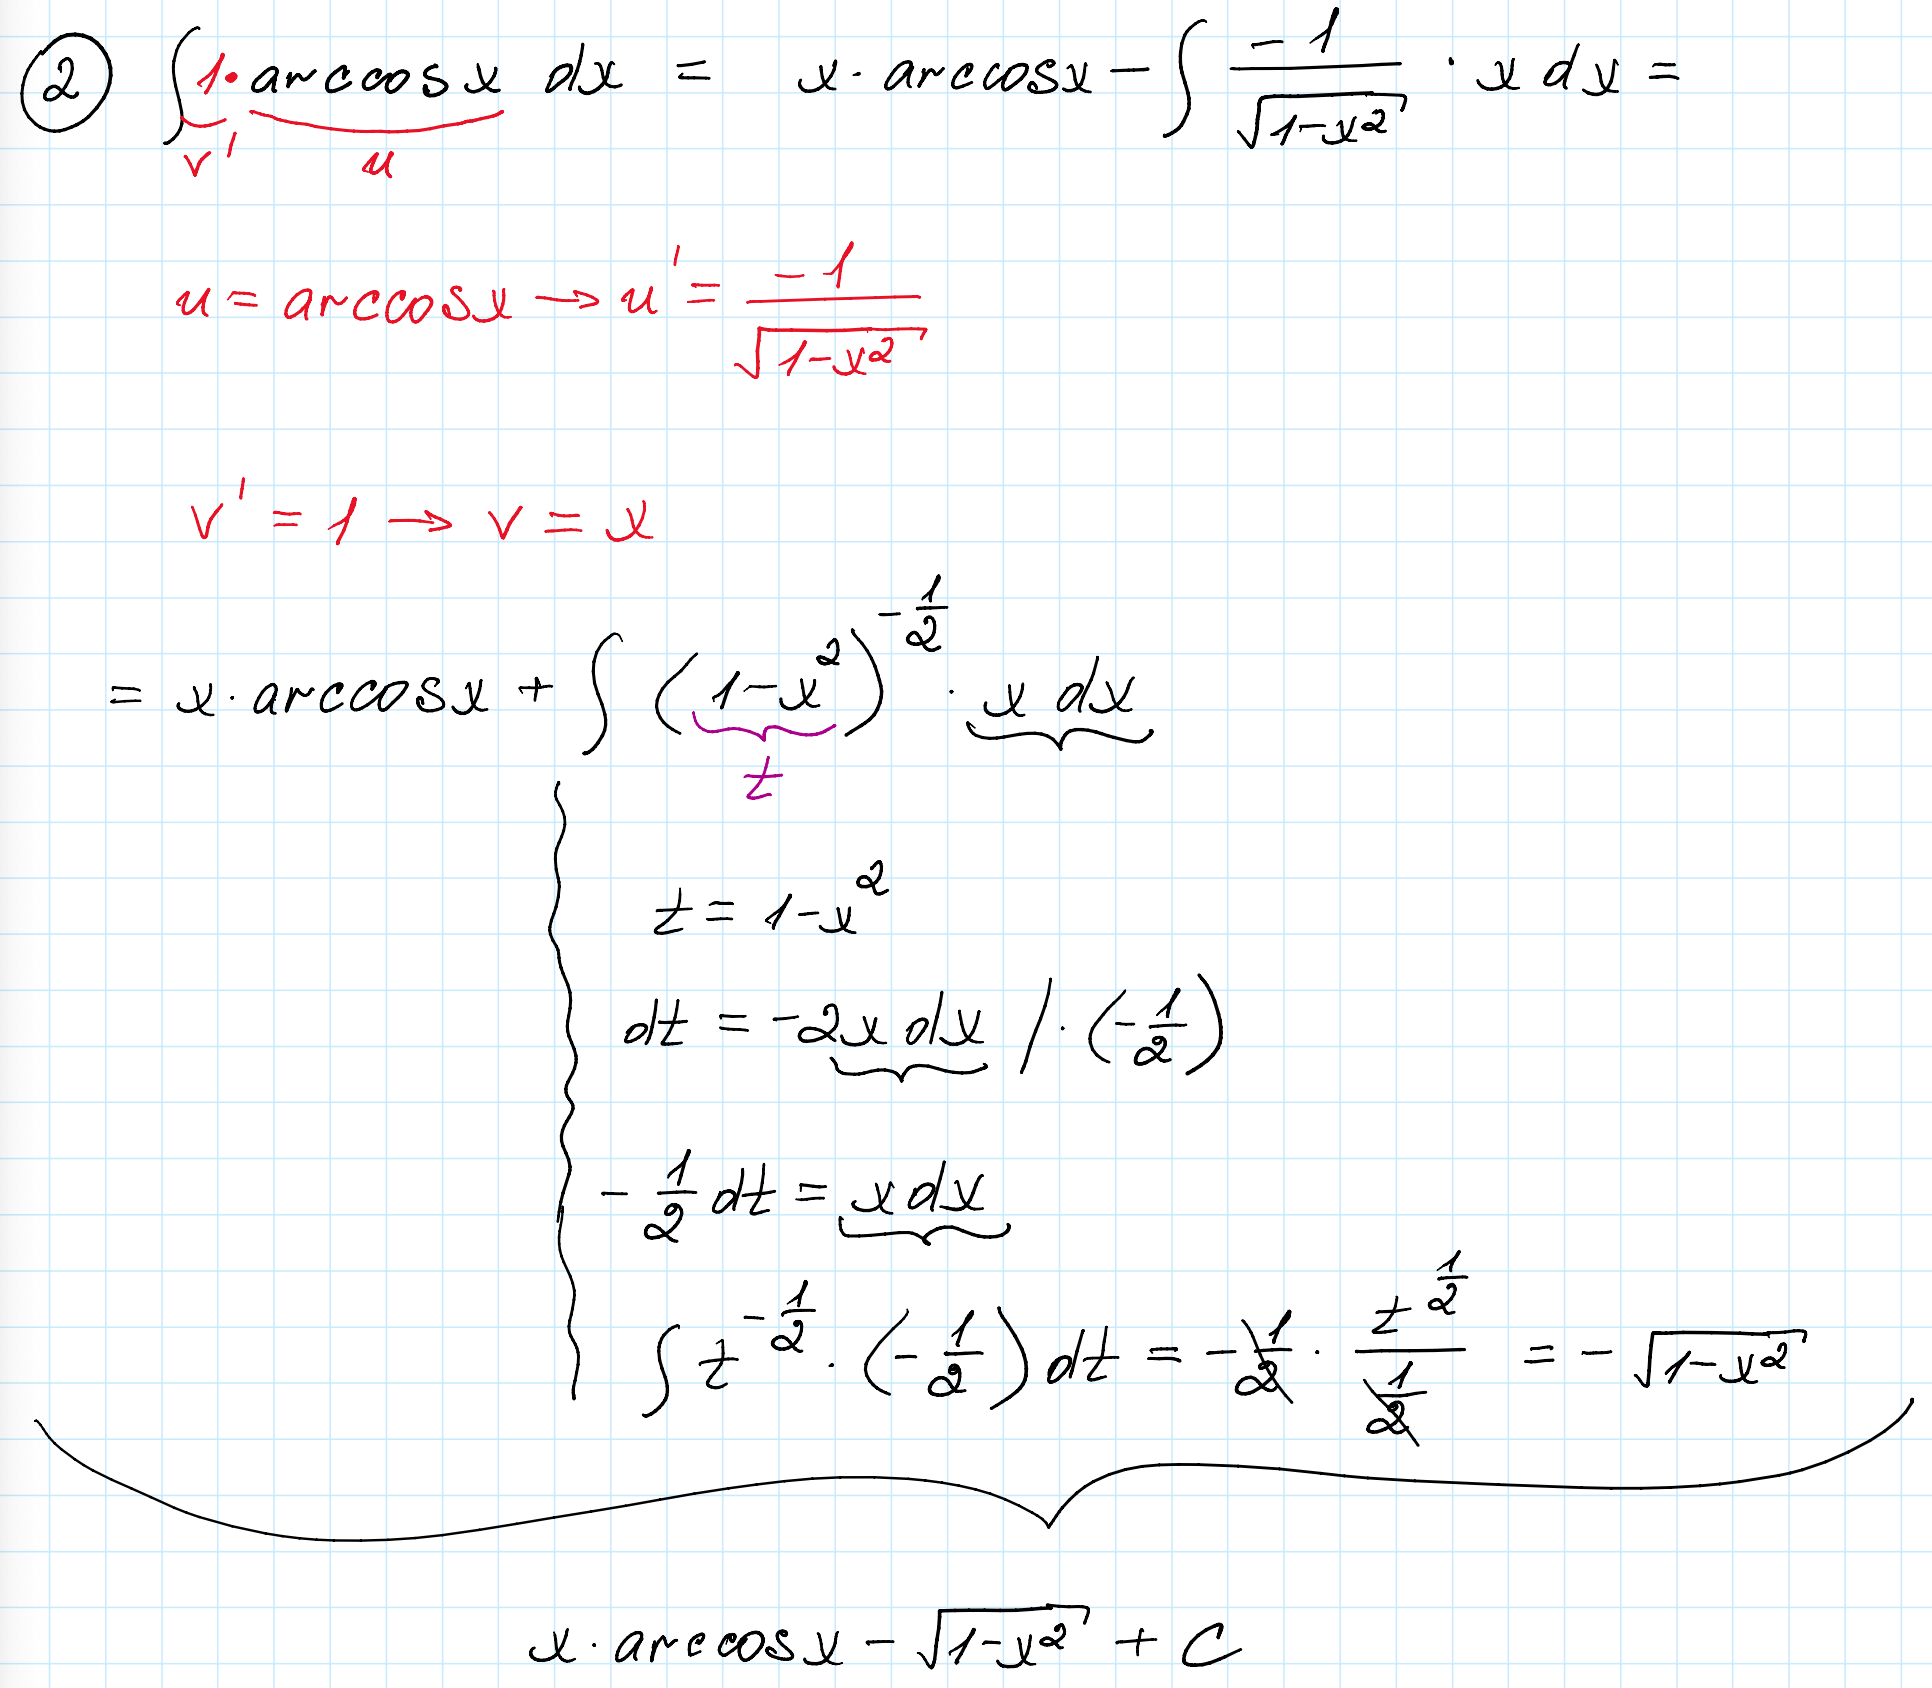 ② ∫ 1· arccosx dx = x· arccosx − ∫ −1/√(1−x²) · x dx =
v' u
u = arccosx → u' = −1/√(1−x²)
v' = 1 → v = x
= x· arccosx + ∫ (1−x²)^(−1/2) · x dx
t
t = 1−x²
dt = −2x dx /·(−1/2)
−1/2 dt = x dx
∫ t^(−1/2) · (−1/2) dt = −1/2 · t^(1/2)/(1/2) = −√(1−x²)
x· arccosx − √(1−x²) + C